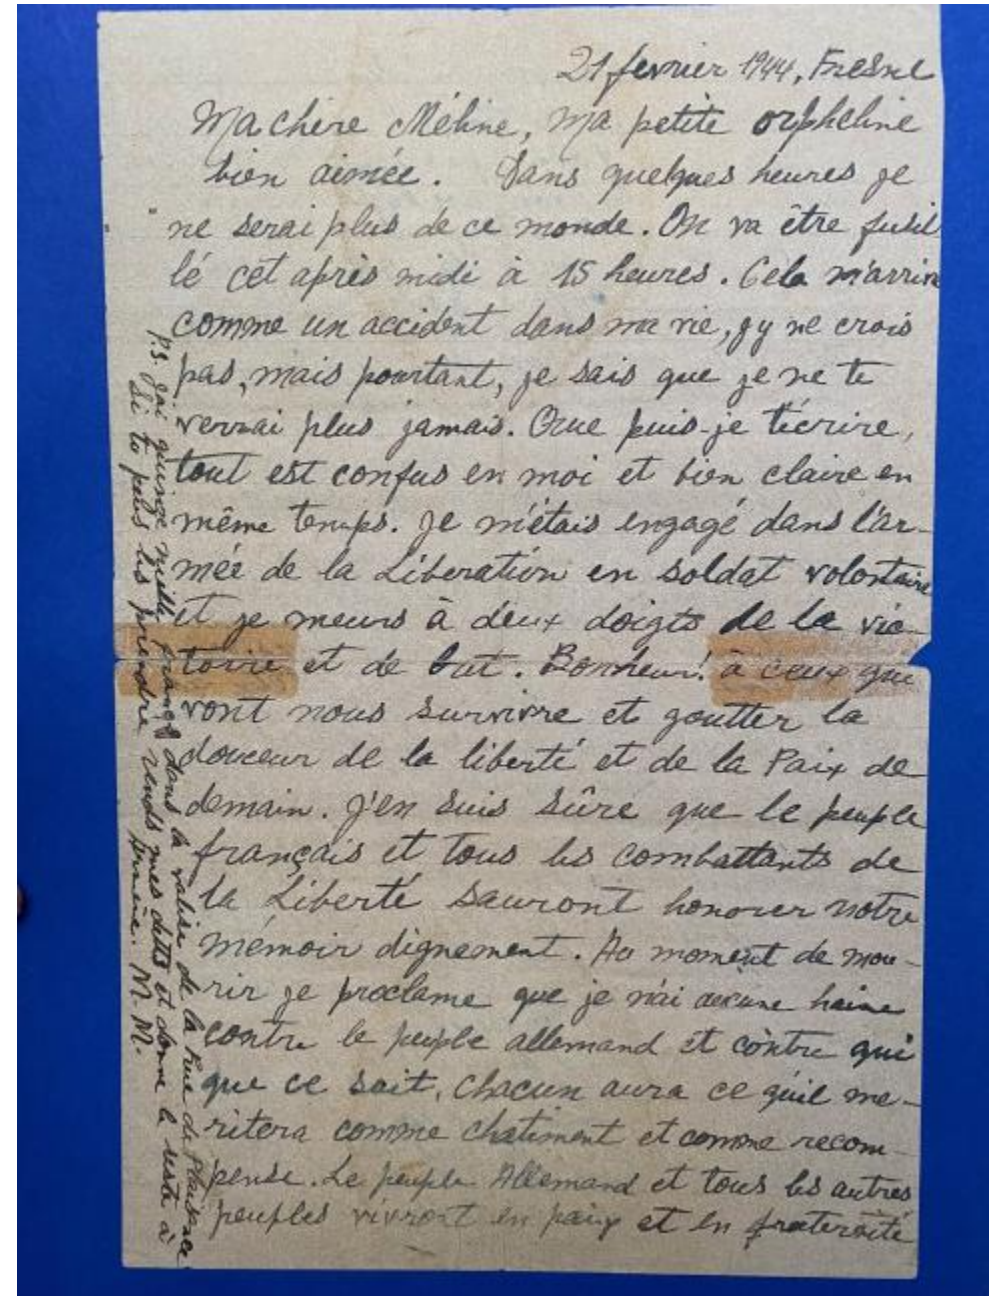 21 fevrier 1944, Fresne
Ma chère Méline, ma petite orpheline
bien aimée. Dans quelques heures je
ne serai plus de ce monde. On va être fusil
lé cet après midi à 15 heures. Cela m'arrive
comme un accident dans ma vie, j'y ne crois
pas, mais pourtant, je sais que je ne te
verrai plus jamais. Que puis-je t'écrire,
tout est confus en moi et bien claire en
même temps. Je m'étais engagé dans l'ar-
mée de la Libération en soldat volontaire
et je meurs à deux doigts de la vic-
toire et de but. Bonheur! à ceux qui
vont nous survivre et goutter la
douceur de la liberté et de la Paix de
demain. J'en suis sûre que le peuple
français et tous les combattants de
la Liberté sauront honorer notre
mémoir dignement. Au moment de mou-
rir je proclame que je n'ai aucune haine
contre le peuple allemand et contre qui
que ce soit, chacun aura ce qu'il me-
ritera comme chatiment et comme recom-
pense. Le peuple Allemand et tous les autres
peuples vivront en paix et en fraternité
P.S. J'ai quinze mille francs dans la valise de la Rue de Plaisance
Si tu peus les prendre rends mes dettes et donne le reste à
Armène. M. M.